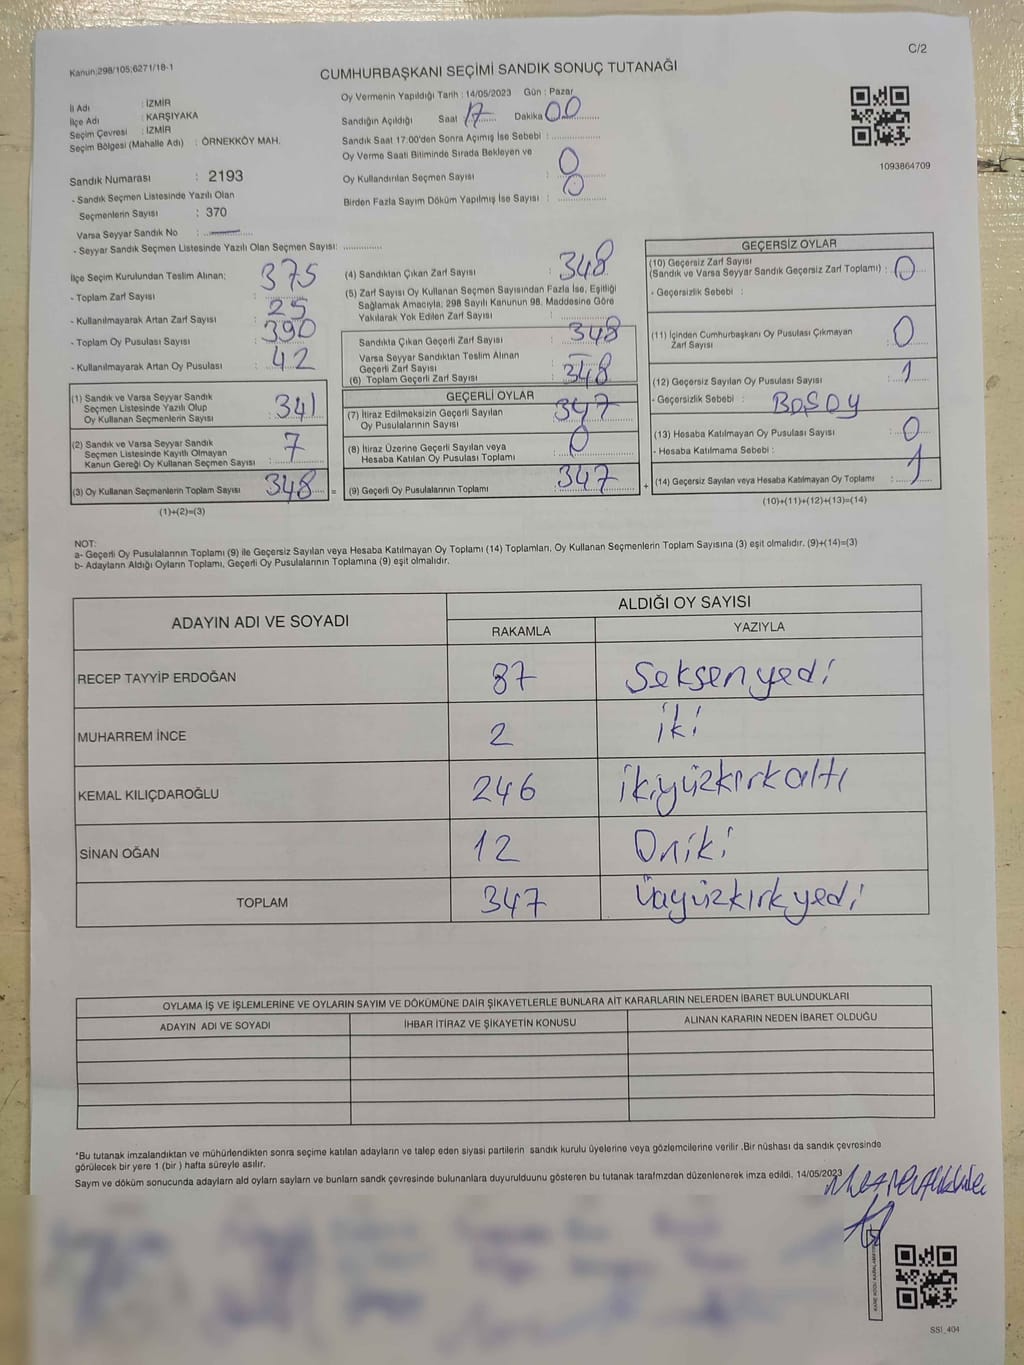 Kanun;298/105;6271/18-1
C/2
CUMHURBAŞKANI SEÇİMİ SANDIK SONUÇ TUTANAĞI
1093864709
İl Adı : İZMİR
İlçe Adı : KARŞIYAKA
Seçim Çevresi : İZMİR
Seçim Bölgesi (Mahalle Adı) : ÖRNEKKÖY MAH.
Sandık Numarası : 2193
- Sandık Seçmen Listesinde Yazılı Olan
Seçmenlerin Sayısı : 370
Varsa Seyyar Sandık No :
- Seyyar Sandık Seçmen Listesinde Yazılı Olan Seçmen Sayısı:
Oy Vermenin Yapıldığı Tarih : 14/05/2023 Gün : Pazar
Sandığın Açıldığı Saat 17 Dakika 00
Sandık Saat 17:00'den Sonra Açımış İse Sebebi :
Oy Verme Saati Bitiminde Sırada Bekleyen ve
Oy Kullandırılan Seçmen Sayısı : 0
Birden Fazla Sayım Döküm Yapılmış İse Sayısı : 0
İlçe Seçim Kurulundan Teslim Alınan;
- Toplam Zarf Sayısı : 375
- Kullanılmayarak Artan Zarf Sayısı : 25
- Toplam Oy Pusulası Sayısı : 390
- Kullanılmayarak Artan Oy Pusulası : 42
(1) Sandık ve Varsa Seyyar Sandık
Seçmen Listesinde Yazılı Olup
Oy Kullanan Seçmenlerin Sayısı : 341
(2) Sandık ve Varsa Seyyar Sandık
Seçmen Listesinde Kayıtlı Olmayan
Kanun Gereği Oy Kullanan Seçmen Sayısı : 7
(3) Oy Kullanan Seçmenlerin Toplam Sayısı : 348
(1)+(2)=(3)
(4) Sandıktan Çıkan Zarf Sayısı : 348
(5) Zarf Sayısı Oy Kullanan Seçmen Sayısından Fazla İse, Eşitliği
Sağlamak Amacıyla, 298 Sayılı Kanunun 98. Maddesine Göre
Yakılarak Yok Edilen Zarf Sayısı :
Sandıkta Çıkan Geçerli Zarf Sayısı : 348
Varsa Seyyar Sandıktan Teslim Alınan
Geçerli Zarf Sayısı : -
(6) Toplam Geçerli Zarf Sayısı : 348
GEÇERLİ OYLAR
(7) İtiraz Edilmeksizin Geçerli Sayılan
Oy Pusulalarının Sayısı : 347
(8) İtiraz Üzerine Geçerli Sayılan veya
Hesaba Katılan Oy Pusulası Toplamı : 0
(9) Geçerli Oy Pusulalarının Toplamı : 347
GEÇERSİZ OYLAR
(10) Geçersiz Zarf Sayısı
(Sandık ve Varsa Seyyar Sandık Geçersiz Zarf Toplamı) : 0
- Geçersizlik Sebebi :
(11) İçinden Cumhurbaşkanı Oy Pusulası Çıkmayan
Zarf Sayısı : 0
(12) Geçersiz Sayılan Oy Pusulası Sayısı : 1
- Geçersizlik Sebebi : BOŞ OY
(13) Hesaba Katılmayan Oy Pusulası Sayısı : 0
- Hesaba Katılmama Sebebi :
(14) Geçersiz Sayılan veya Hesaba Katılmayan Oy Toplamı : 1
(10)+(11)+(12)+(13)=(14)
NOT:
a- Geçerli Oy Pusulalarının Toplamı (9) ile Geçersiz Sayılan veya Hesaba Katılmayan Oy Toplamı (14) Toplamları, Oy Kullanan Seçmenlerin Toplam Sayısına (3) eşit olmalıdır. (9)+(14)=(3)
b- Adayların Aldığı Oyların Toplamı, Geçerli Oy Pusulalarının Toplamına (9) eşit olmalıdır.
ADAYIN ADI VE SOYADI
ALDIĞI OY SAYISI
RAKAMLA YAZIYLA
RECEP TAYYİP ERDOĞAN 87 Seksenyedi
MUHARREM İNCE 2 iki
KEMAL KILIÇDAROĞLU 246 ikiyüzkırkaltı
SİNAN OĞAN 12 Oniki
TOPLAM 347 Üçyüzkırkyedi
OYLAMA İŞ VE İŞLEMLERİNE VE OYLARIN SAYIM VE DÖKÜMÜNE DAİR ŞİKAYETLERLE BUNLARA AİT KARARLARIN NELERDEN İBARET BULUNDUKLARI
ADAYIN ADI VE SOYADI İHBAR İTİRAZ VE ŞİKAYETİN KONUSU ALINAN KARARIN NEDEN İBARET OLDUĞU
*Bu tutanak imzalandıktan ve mühürlendikten sonra seçime katılan adayların ve talep eden siyasi partilerin sandık kurulu üyelerine veya gözlemcilerine verilir .Bir nüshası da sandık çevresinde
görülecek bir yere 1 (bir ) hafta süreyle asılır.
Sayım ve döküm sonucunda adayların ald oyların sayların ve bunların sandk çevresinde bulunanlara duyurulduunu gösteren bu tutanak tarafmzdan düzenlenerek imza edildi. 14/05/2023
SSI_404